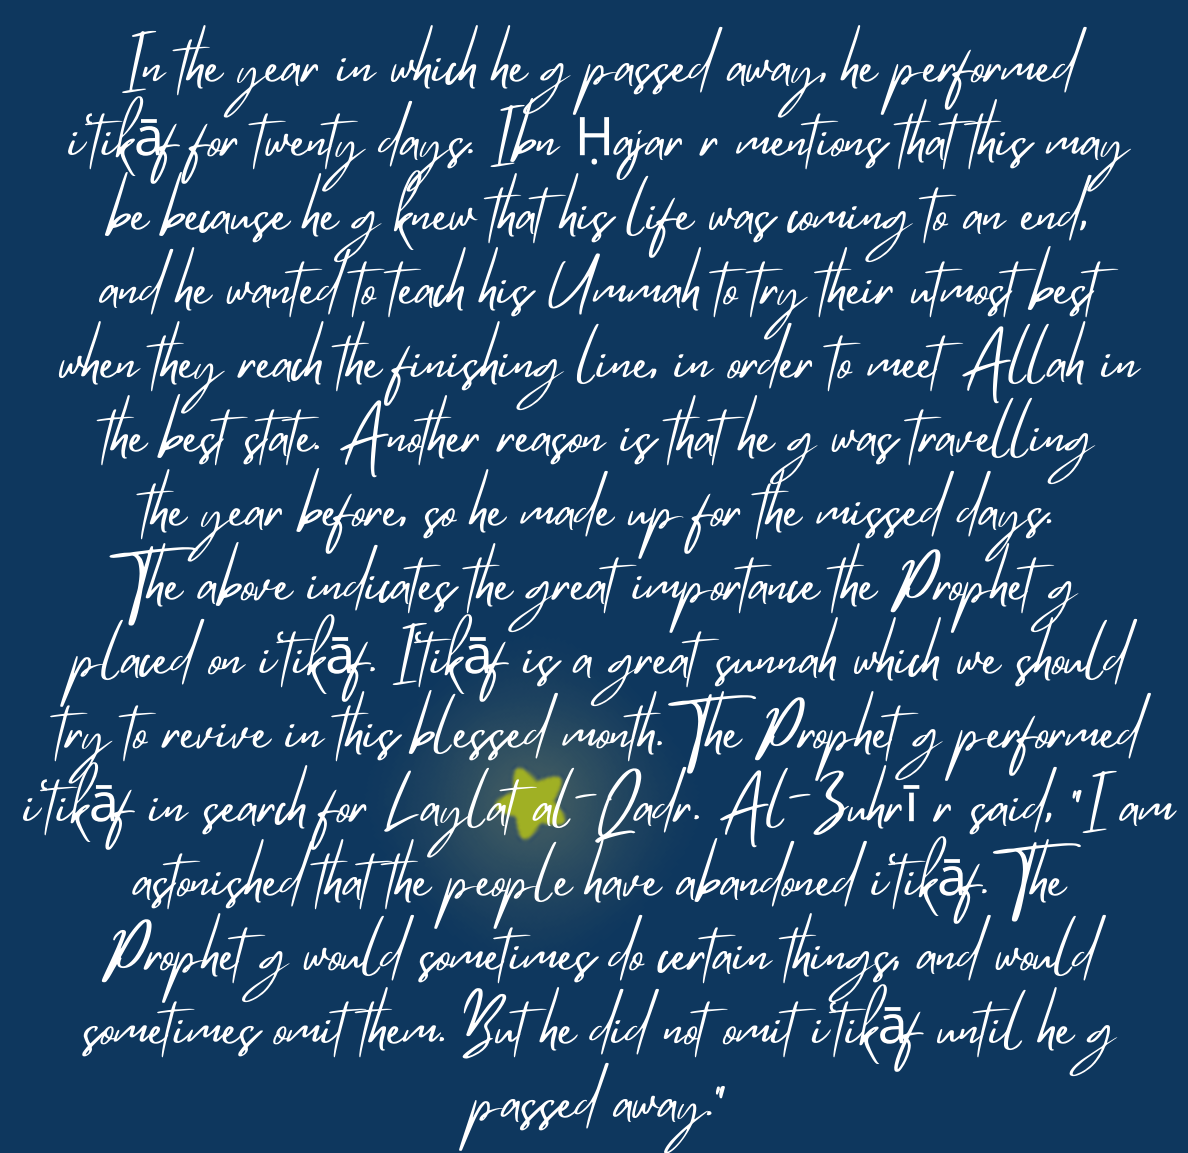 In the year in which he g passed away, he performed
i'tikāf for twenty days. Ibn Ḥajar r mentions that this may
be because he g knew that his life was coming to an end,
and he wanted to teach his Ummah to try their utmost best
when they reach the finishing line, in order to meet Allah in
the best state. Another reason is that he g was travelling
the year before, so he made up for the missed days.
The above indicates the great importance the Prophet g
placed on i'tikāf. I'tikāf is a great sunnah which we should
try to revive in this blessed month. The Prophet g performed
i'tikāf in search for Laylat al-Qadr. Al-Zuhrī r said, "I am
astonished that the people have abandoned i'tikāf. The
Prophet g would sometimes do certain things, and would
sometimes omit them. But he did not omit i'tikāf until he g
passed away."